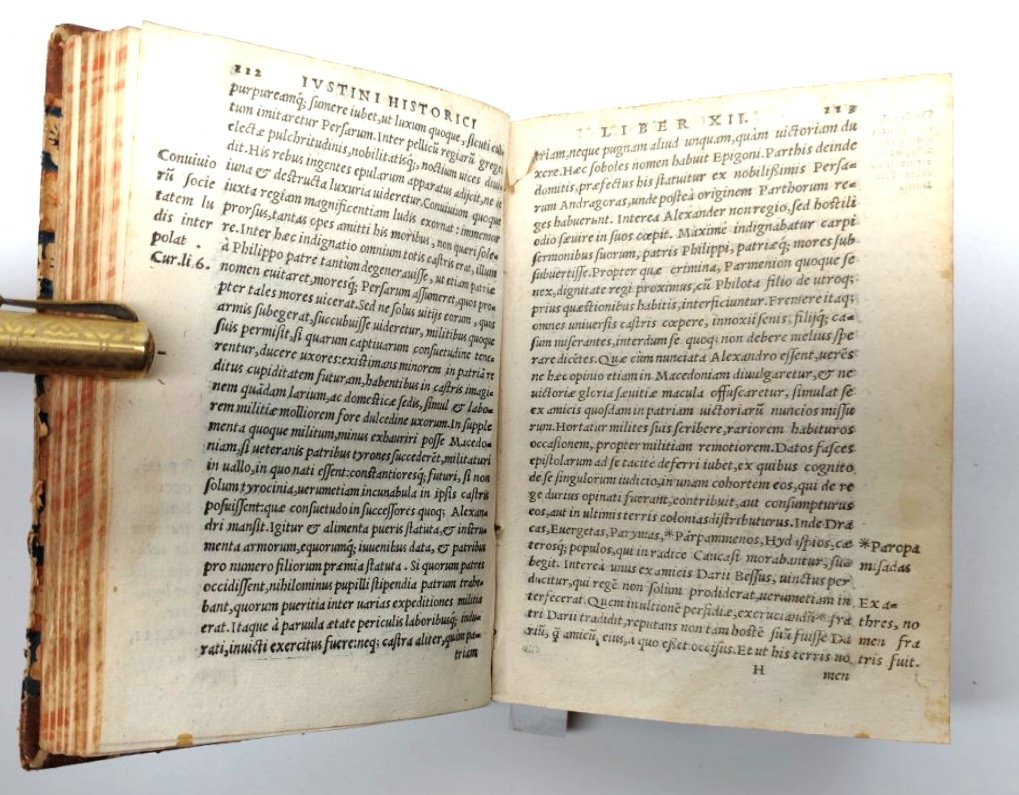 112
IVSTINI HISTORICI
purpureamq; sumere iubet, ut luxum quoque, sicuti cul=
tum imitaretur Persarum. Inter pellicũ regiarũ greges
electæ pulchritudinis, nobilitatisq; noctium uices diuisit.
dit. His rebus ingentes epularum apparatus adijcit, ne ie
iuna & destructa luxuria uideretur. Conuiuium quoque
iuxta regiam magnificentiam ludis exornat: immemor
prorsus, tantas opes amitti his moribus, non quæri sole=
re. Inter hæc indignatio omnium totis castris erat, illum
à Philippo patre tantum degenerauisse, ut etiam patriæ
nomen euitaret, moresq; Persarum assumeret, quos pro=
pter tales mores uicerat. Sed ne solus uitijs eorum, quos
armis subegerat, succubuisse uideretur, militibus quoque
suis permisit, si quarum captiuarum consuetudine tene=
rentur, ducere uxores: existimans minorem in patriã re
ditus cupiditatem futuram, habentibus in castris imagi=
nem quãdam larium, ac domesticæ sedis, simul & labo=
rem militiæ molliorem fore dulcedine uxorum. In supple
menta quoque militum, minus exhauriri posse Macedo=
niam, si ueteranis patribus tyrones succederẽt, militaturi
in uallo, in quo nati essent: constantioresq; futuri, si non
solum tyrocinia, uerumetiam incunabula in ipsis castris
posuissent: quæ consuetudo in successores quoq; Alexan=
dri mansit. Igitur & alimenta pueris statuta, & instru=
menta armorum, equorumq; iuuenibus data, & patribus
pro numero filiorum præmia statuta. Si quorum patres
occidissent, nihilominus pupilli stipendia patrum trahe=
bant, quorum pueritia inter uarias expeditiones militia
erat. Itaque à paruula ætate periculis laboribusq; indu=
rati, inuicti exercitus fuere: neq; castra aliter, quàm pa=
triam
Conuiuio
rũ socie
tatem lu
dis inter
polat.
Cur. li 6.
LIBER XII.
113
triam, neque pugnam aliud unquam, quàm uictoriam du
xere. Hæc soboles nomen habuit Epigoni. Parthis deinde
domitis, præfectus his statuitur ex nobilissimis Persa=
rum Andragoras, unde posteà originem Parthorum re=
ges habuerunt. Interea Alexander non regio, sed hostili
odio sæuire in suos cœpit. Maximè indignabatur carpi
sermonibus suorum, patris Philippi, patriæq; mores sub
subuertisse. Propter quæ crimina, Parmenion quoque se
nex, dignitate regi proximus, cũ Philota filio de utroq;
prius quæstionibus habitis, interficiuntur. Fremere itaq;
omnes uniuersis castris cœpere, innoxij senis, filijq; ca=
sum miserantes, interdum se quoq; non debere melius spe
rare dicẽtes. Quæ cùm nunciata Alexandro essent, uerẽs
ne hæc opinio etiam in Macedoniam diuulgaretur, & ne
uictoriæ gloria sæuitiæ macula offuscaretur, simulat se
ex amicis quosdam in patriam uictoriarũ nuncios missu
rum. Hortatur milites suis scribere, rariorem habituros
occasionem, propter militiam remotiorem. Datos fasces
epistolarum ad se tacitè deferri iubet, ex quibus cognito
de se singulorum iudicio, in unam cohortem eos, qui de re
ge durius opinati fuerant, contribuit, aut consumpturus
eos, aut in ultimis terris colonias distributurus. Inde Dra
cas, Euergetas, Parymas, *Parpammenos, Hydaspios, cæ
terosq; populos, qui in radice Caucasi morabantur, sub=
begit. Interea unus ex amicis Darij Bessus, uinctus per
ducitur, qui regẽ non solùm prodiderat, uerumetiam in
terfecerat. Quem in ultionẽ perfidiæ, excruciandũ* fra
tri Darij tradidit, reputans non tam hostẽ suũ fuisse Da
riũ, q̃ amicũ eius, à quo esset occisus. Et ut his terris no
*Paropa
misadas
Ex a=
thres, no
men fra
tris fuit.
H
men